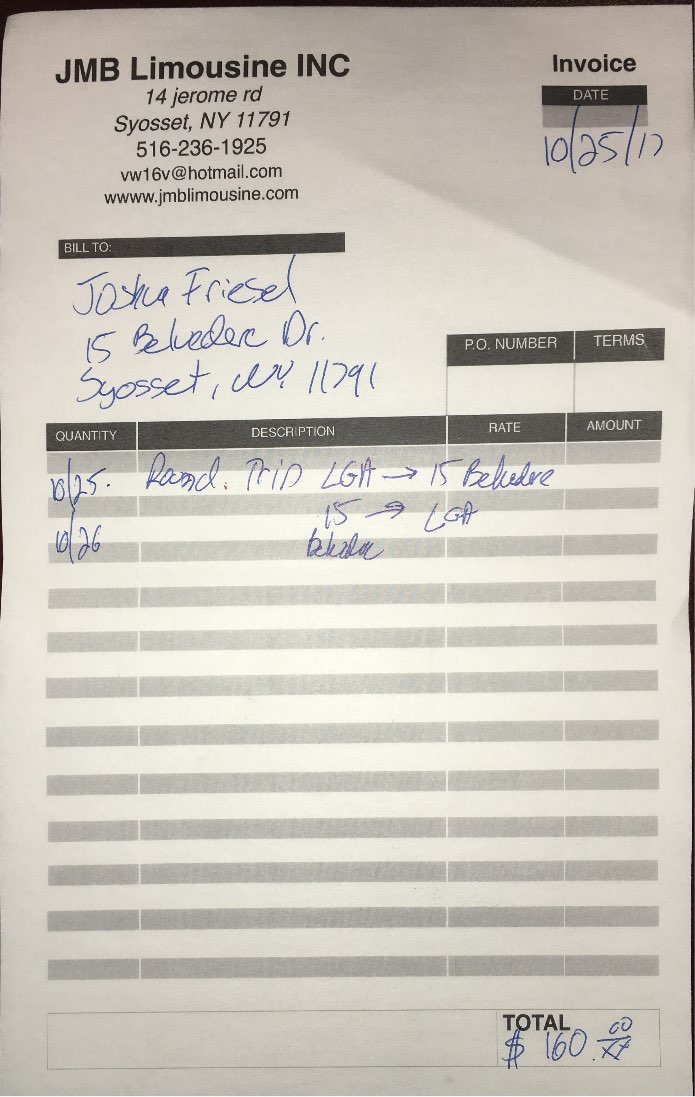 JMB Limousine INC
14 jerome rd
Syosset, NY 11791
516-236-1925
vw16v@hotmail.com
wwww.jmblimousine.com
Invoice
DATE
10/25/17
BILL TO:
Joshua Friesel
15 Belvedere Dr.
Syosset, NY 11791
P.O. NUMBER TERMS
QUANTITY DESCRIPTION RATE AMOUNT
10/25. Round. Trip LGA → 15 Belvedre
15 → LGA
10/26
TOTAL
$ 160.00/XX